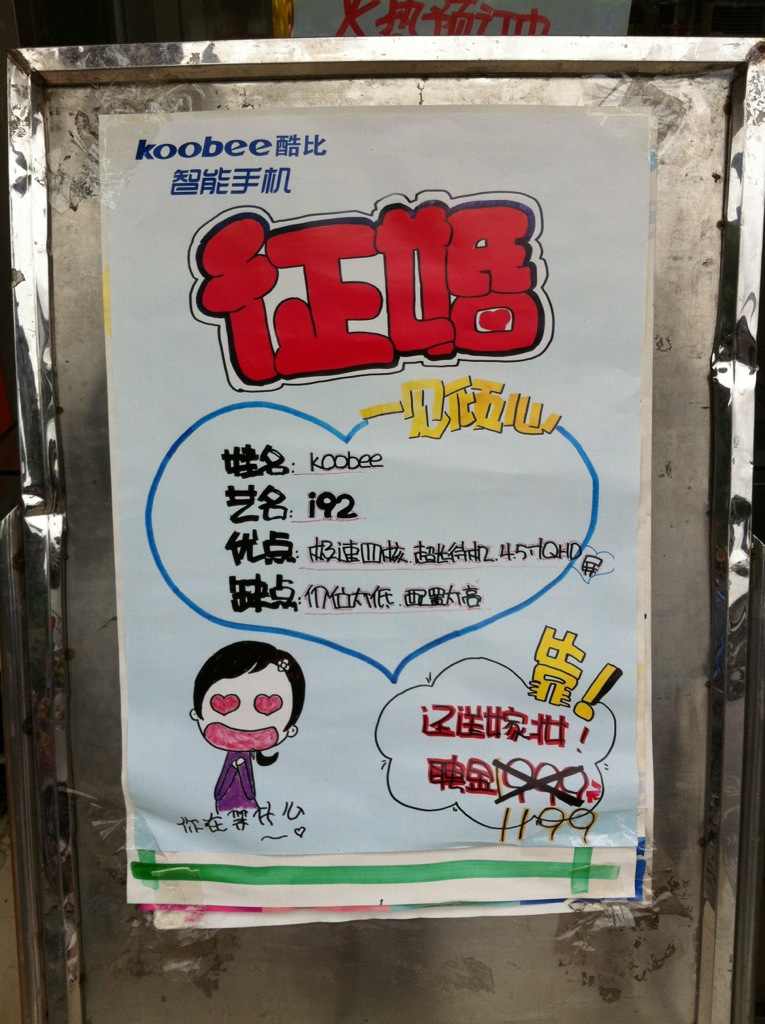 火热预订中
koobee 酷比
智能手机
征婚
一见倾心
姓名: koobee
艺名: i92
优点: 极速四核.超长待机.4.5寸QHD屏
缺点: 价位太低.配置太高
靠!
还送嫁妆!
聘金1999
1199
你在等什么